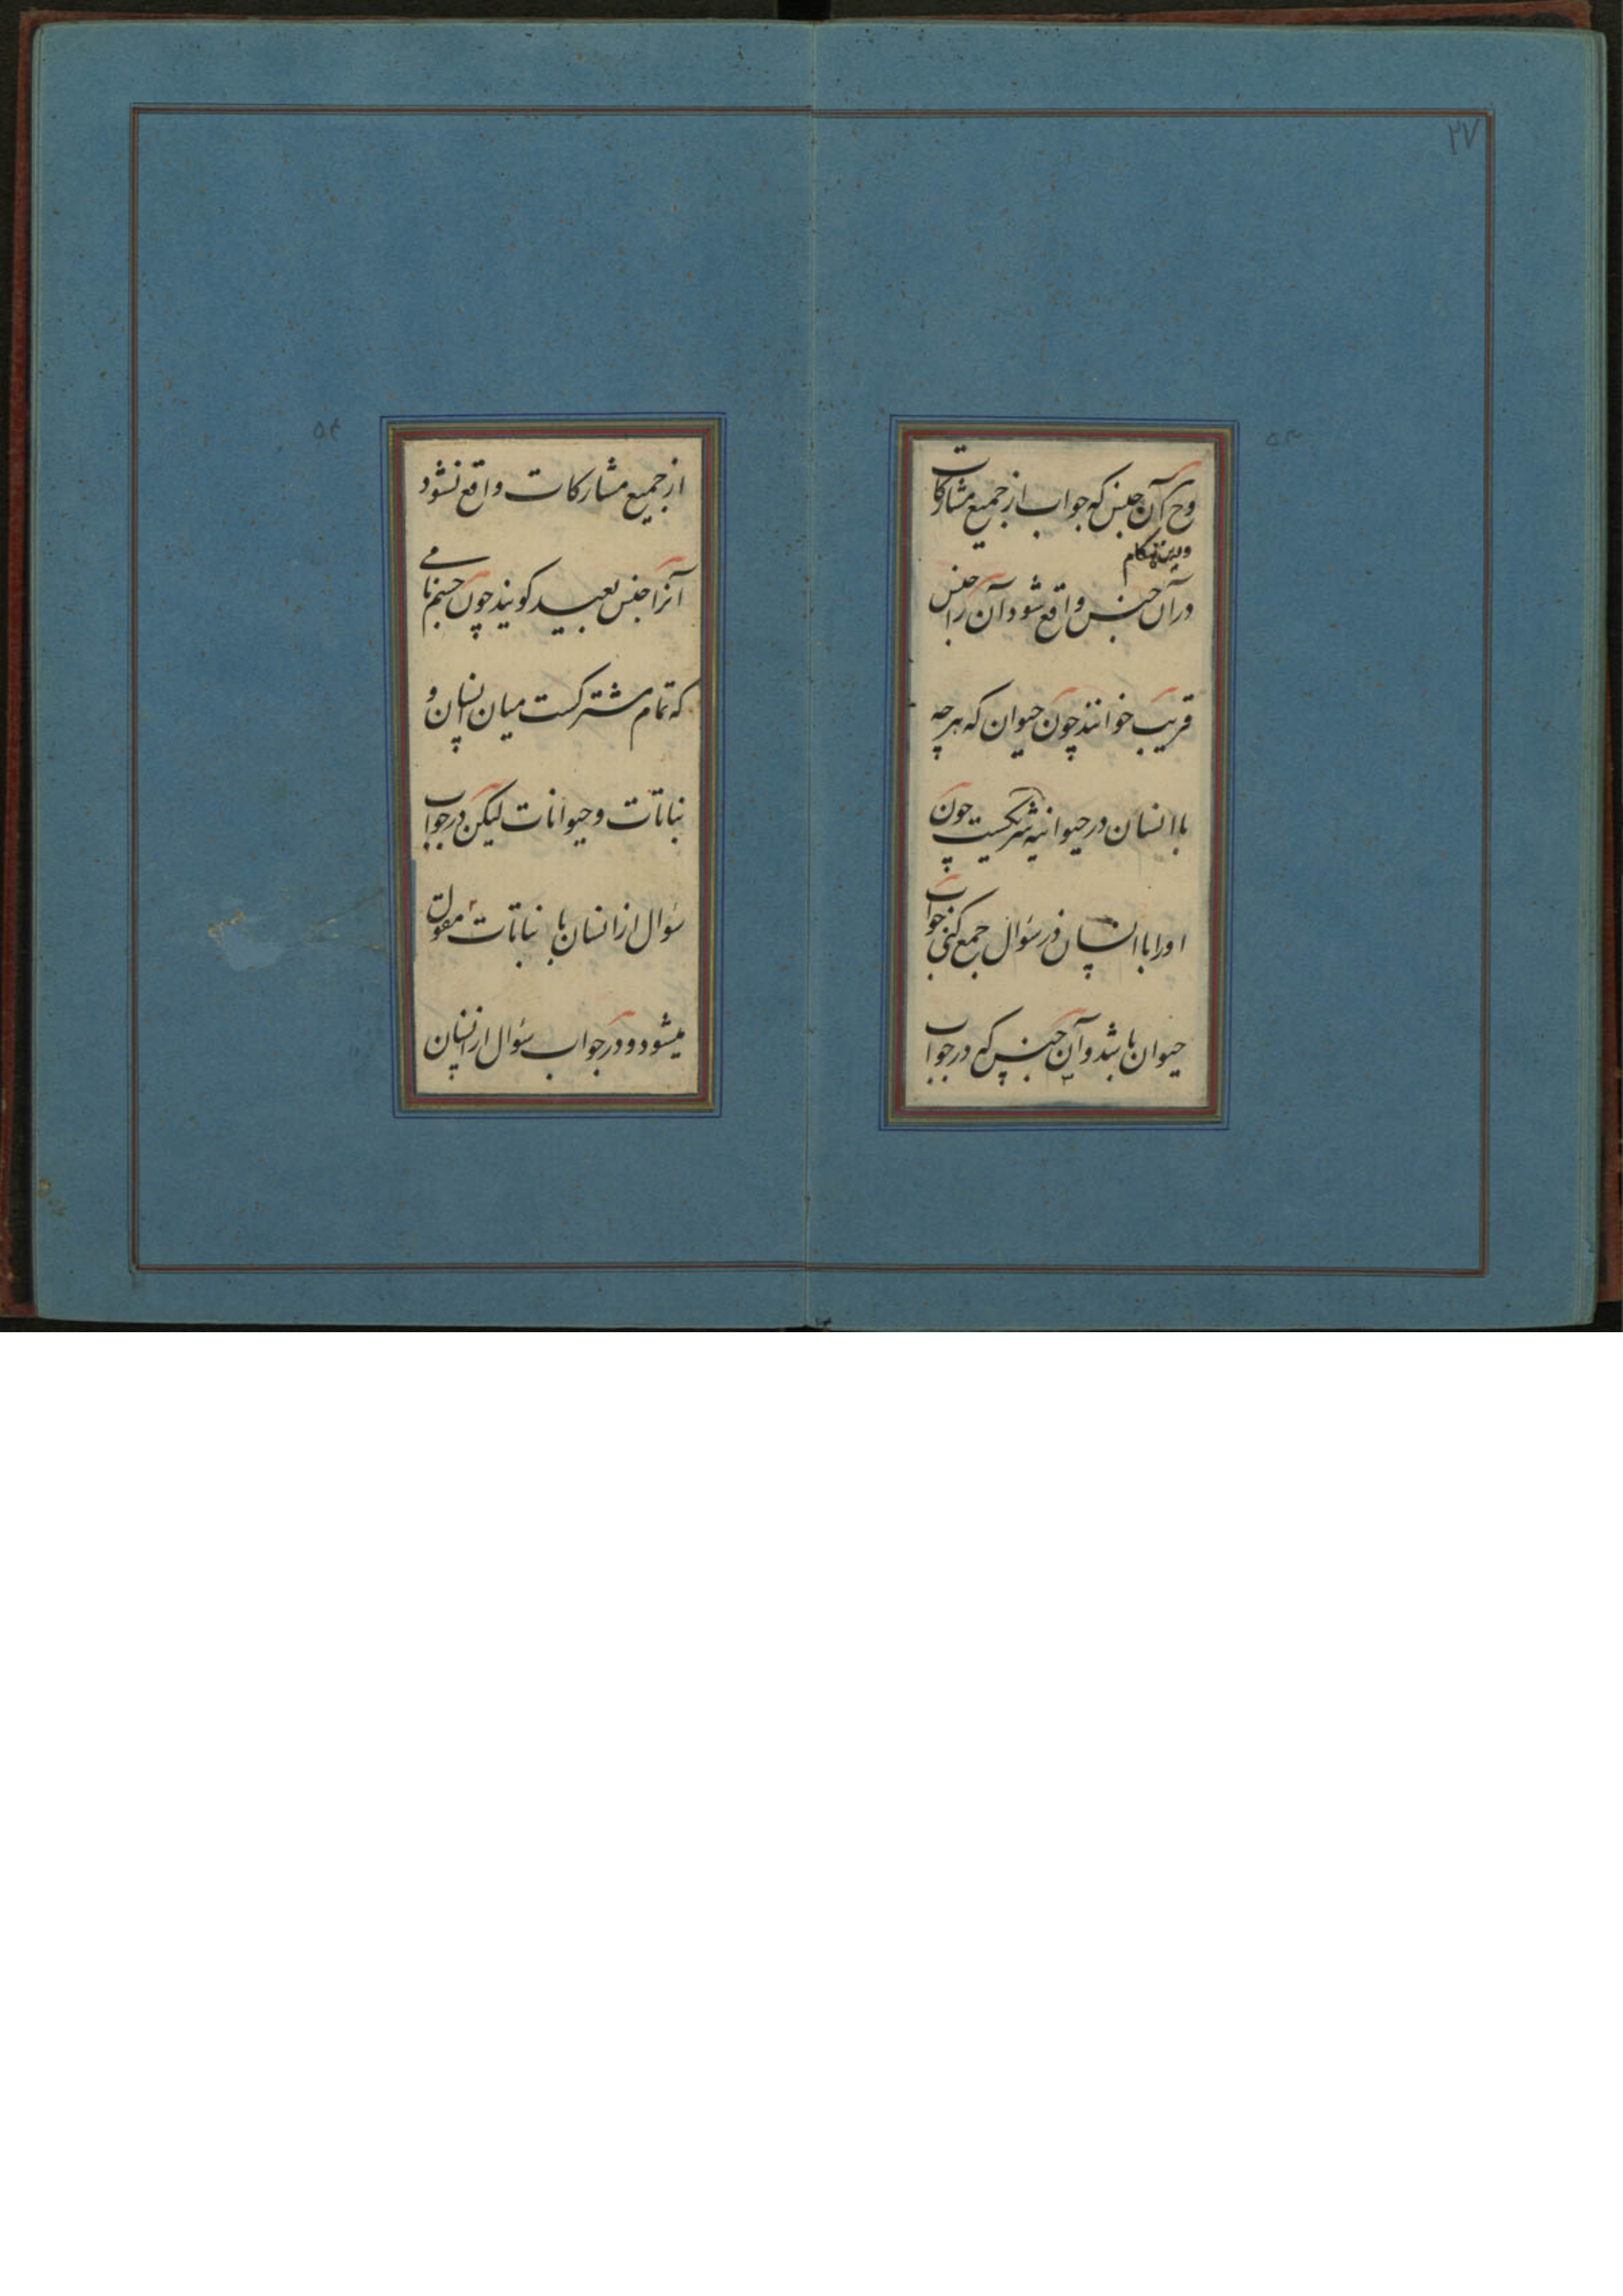 ۲۷
۵۳
وح آن جنس که جواب از جمیع مشارکات
در آن جنس واقع شود آن را جنس
قریب خوانند چون حیوان که هرچه
با انسان در حیوانیه شریکست چون
او را با انسان در سؤال جمع کنی جواب
حیوان باشد و آن جنس که در جواب
۵۴
از جمیع مشارکات واقع نشود
آنرا جنس بعید کویند چون جسم نامی
که تمام مشترکست میان انسان و
نباتات و حیوانات لیکن در جواب
سؤال از انسان با نباتات مقول
میشود و در جواب سؤال از انسان